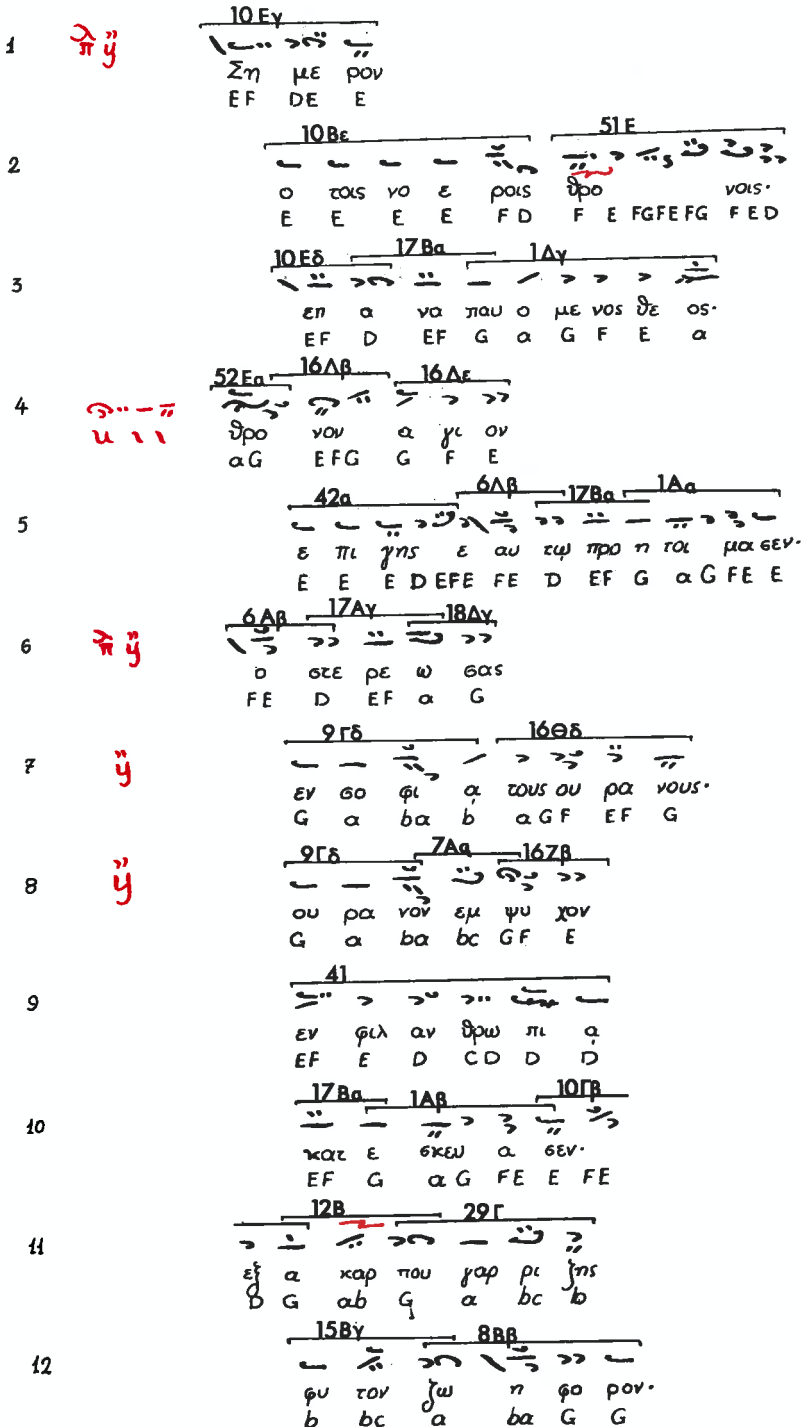 10 Εγ
1 λ π ÿ
Ση με ρον
EF DE E
10 Βε 51 Ε
2
ο τοις νο ε ροις θρο νοις·
E E E E F D F E FGFEFG F E D
10 Εδ 17 Βα 1 Δγ
3
επ α να παυ ο με νος θε ος·
EF D EF G a G F E a
52 Εα 16 Λβ 16 Δε
4
θρο νον α γι ον
a G E F G G F E
42α 6 Λβ 17 Βα 1 Αα
5
ε πι γης ε αυ τω προ η τοι μα σεν·
E E E D EFE FE D EF G a G FE E
6 Αβ 17 Αγ 18 Δγ
6 λ π ÿ
ο στε ρε ω σας
FE D EF a G
9 Γδ 16 Θδ
7 ÿ
εν σο φι α τους ου ρα νους·
G a ba b a G F EF G
9 Γδ 7 Αα 16 Ζβ
8 ÿ
ου ρα νον εμ ψυ χον
G a ba bc G F E
41
9
εν φιλ αν θρω πι α
EF E D CD D D
17 Βα 1 Αβ 10 Γβ
10
κατ ε σκευ α σεν·
EF G a G FE E FE
12Β 29 Γ
11
εξ α καρ που γαρ ρι ζης
D G ab G a bc b
15 Βγ 8 Ββ
12
φυ τον ζω η φο ρον·
b bc a ba G G